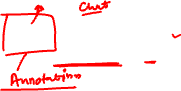 Chart
Annotations